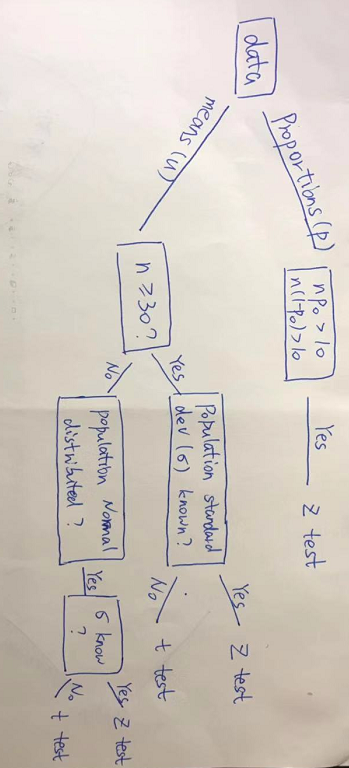 data
Proportions (p)
np₀ > 10
n(1-p₀) > 10
Yes
Z test
means (u)
n ≥ 30?
Yes
Population standard
dev (σ) known?
Yes
Z test
No
t test
No
population Normal
distributed?
Yes
σ know
?
Yes
Z test
No
t test